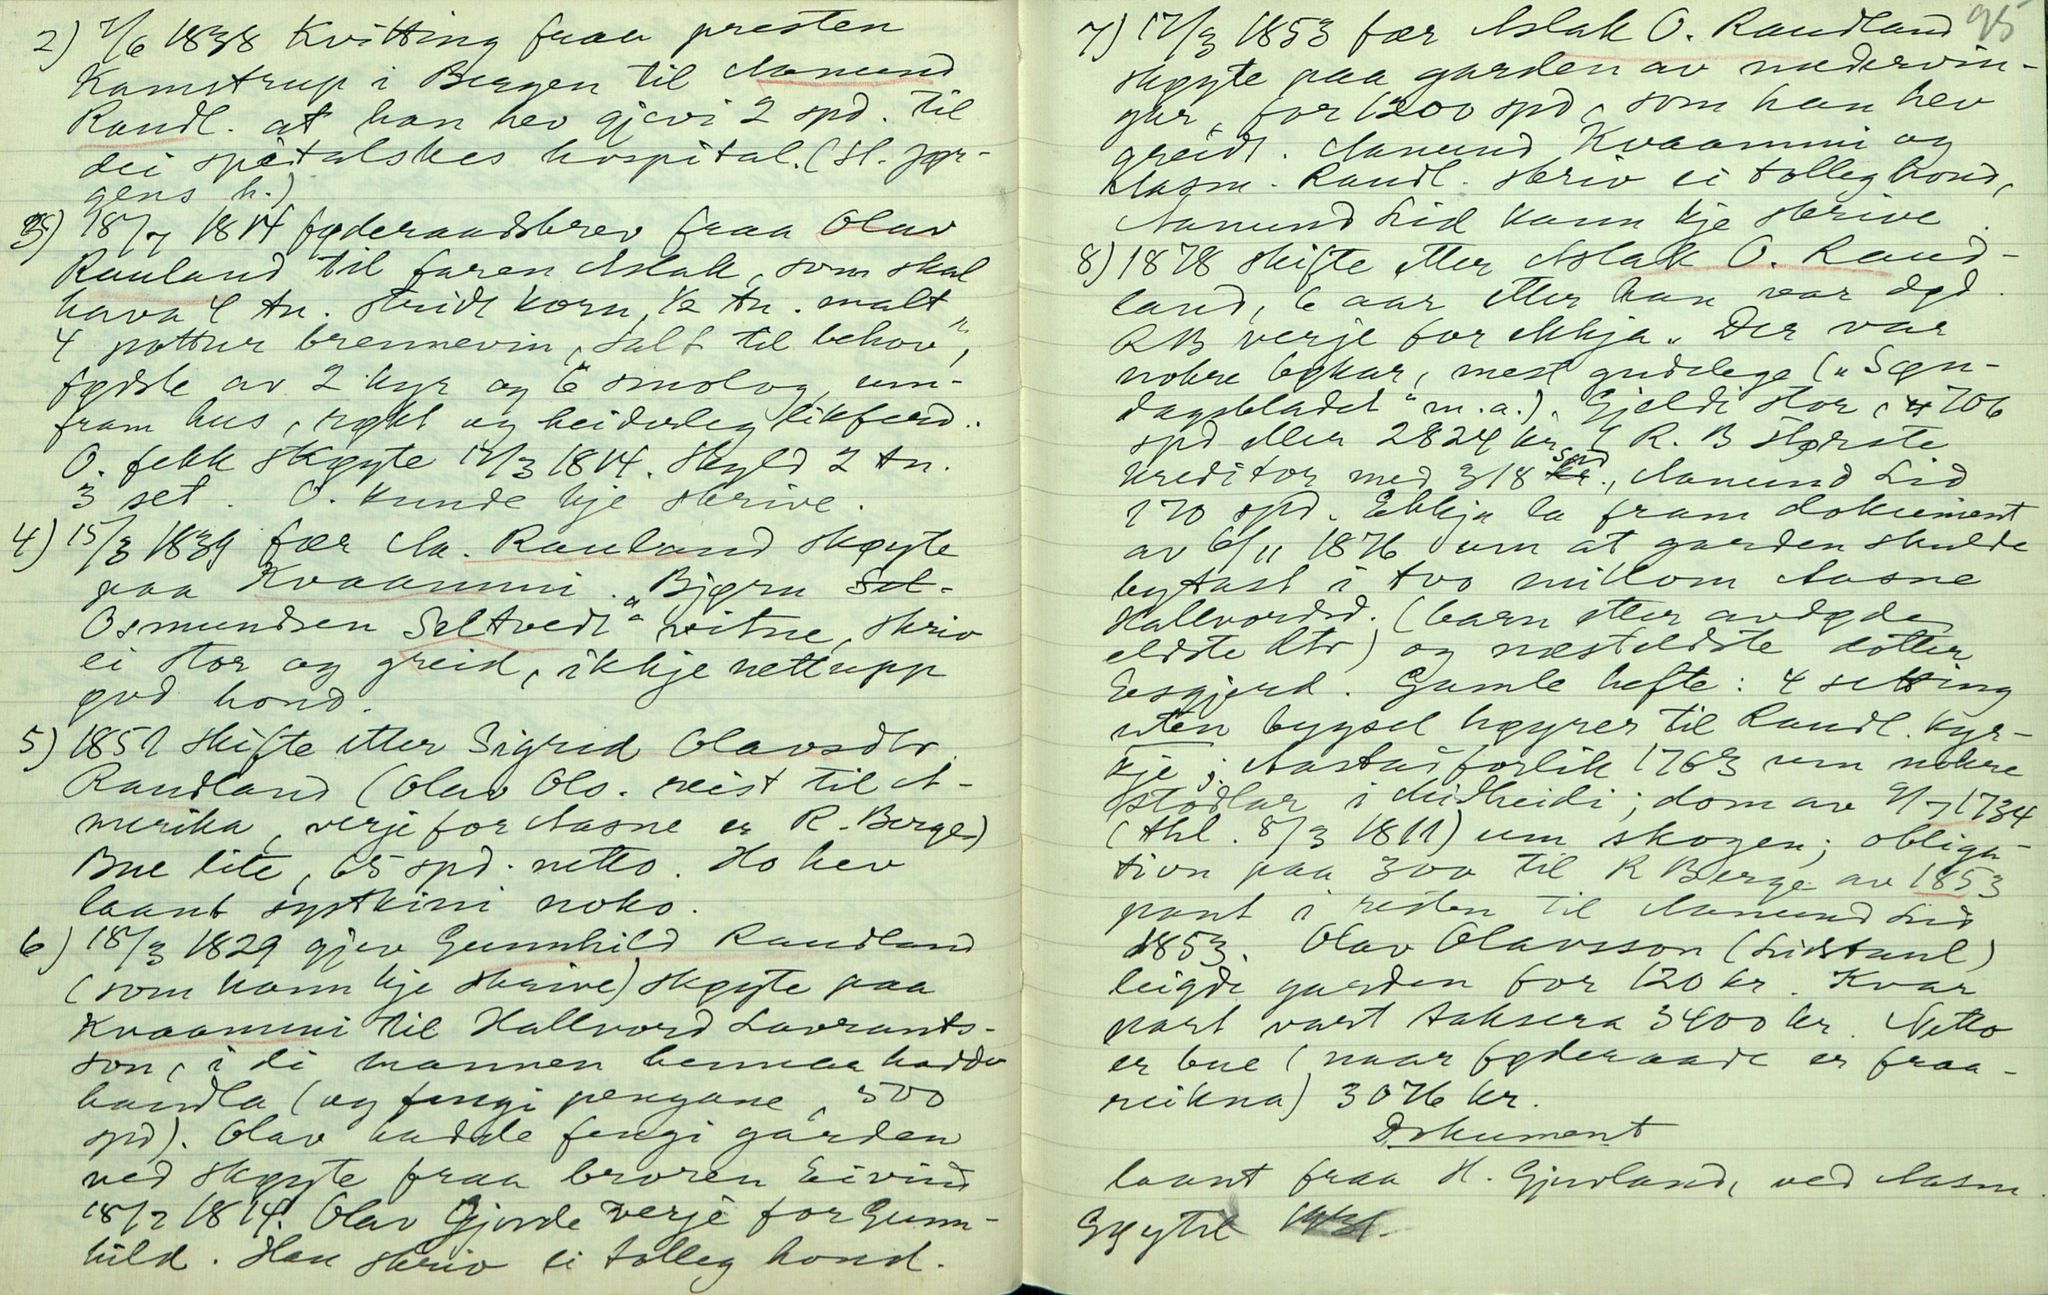 2) 7/6 1838 Kvitting fraa presten
Kamstrup i Bergen til Aamund
Raudl. at han hev gjevi 2 spd. til
dei spitalskes hospital. (St. Jør-
gens h.)
3) 18/7 1814 føderaadsbrev fraa Olav
Rauland til faren Aslak, som skal
hava 4 tn. stridt korn, 1/2 tn. malt,
4 pottur brennevin, "salt til behov",
fødsle av 2 kyr og 6 smolog, um-
fram hus, røkt og heiderleg likferd.
O. fekk skøyte 12/3 1814. Skyld 2 tn.
3 set. O. kunde kje skrive.
4) 15/3 1839 fær Aa. Rauland skøyte
paa Kvaammi. "Bjørn Sel-
Osmundsen Seltvedt" vitne, skriv
ei stor og greid, ikkje nettupp
god hond.
5) 1851 skifte etter Sigrid Olavsdtr.
Raudland (Olav Ols. reist til A-
merika, verje for Aasne er R. Berge)
Bue lite, 65 spd. netto. Ho hev
laant systkini noko.
6) 18/3 1829 gjev Gunnhild Raudland
(som kann kje skrive) skøyte paa
Kvaammi til Hallvord Lavrants-
son, i di mannen hennaa hadde
handla (og fengi pengane, 500
spd). Olav hadde fengi garden
ved skøyte fraa broren Eivind
18/2 1814. Olav Gjorde verje for Gunn-
hild. Han skriv ei tolleg hond.
95
7) 17/3 1853 fær Aslak O. Raudland
skøyte paa garden av medervin-
gar, for 1200 spd, som han hev
greidt. Aamund Kvaammi og
Aasm. Raudl. skriv ei tolleg hond,
Aamund Lid kann kje skrive.
8) 1878 skifte etter Aslak O. Raud-
land, 6 aar etter han var død.
RB verje for ekkja. Der var
nokre bøkar, mest gudelege ("Søn-
dagsbladet" m.a.). Gjeldi stor, 706
spd eller 2824 kr, R. B største
kreditor med 318 spd kr., Aamund Lid
170 spd. Ekkja la fram dokument
av 6/11 1876 um at garden skulde
bytast i tvo millom Aasne
Hallvordsd. (barn etter avdøde
eldste dtr) og næsteldste dotter
Gamle hefte: 4 setting
uten bygsel høyrer til Raudl. kyr-
kje; Aastadforlik 1763 um nokre
stødlar i Midheidi; dom av 9/7 1734
(thl. 8/3 1811) um skogen; obliga-
tion paa 300 til R Berge av 1853
pant i resten til Aamund Lid
1853. Olav Olavsson (Lidstaul)
leigde garden for 120 kr. Kvar
part vart taksera 3400 kr. Netto
er bue (naar føderaade er fraa-
reikna) 3076 kr.
Dokument
laant fraa H. Gjuvland, ved Aasm.
Grytil 1931.